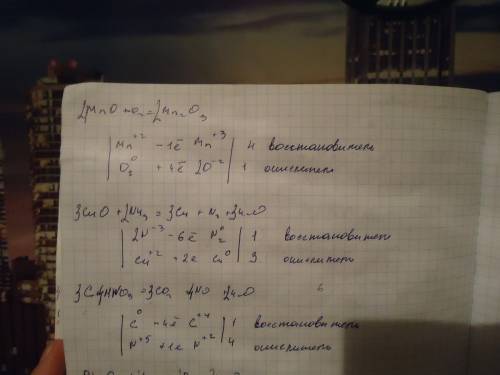 2MnO + O₂ = 2Mn₂O₃
Mn⁺² - 1ē Mn⁺³ | 4 восстановитель
O₂⁰ + 4ē 2O⁻² | 1 окислитель
3CuO + 2NH₃ = 3Cu + N₂ + 3H₂O
2N⁻³ - 6ē N₂⁰ | 1 восстановитель
Cu⁺² + 2e Cu⁰ | 3 окислитель
C⁰ - 4ē C⁺⁴ | 1 восстановитель
N⁺⁵ + 1e N⁺² | 4 окислитель